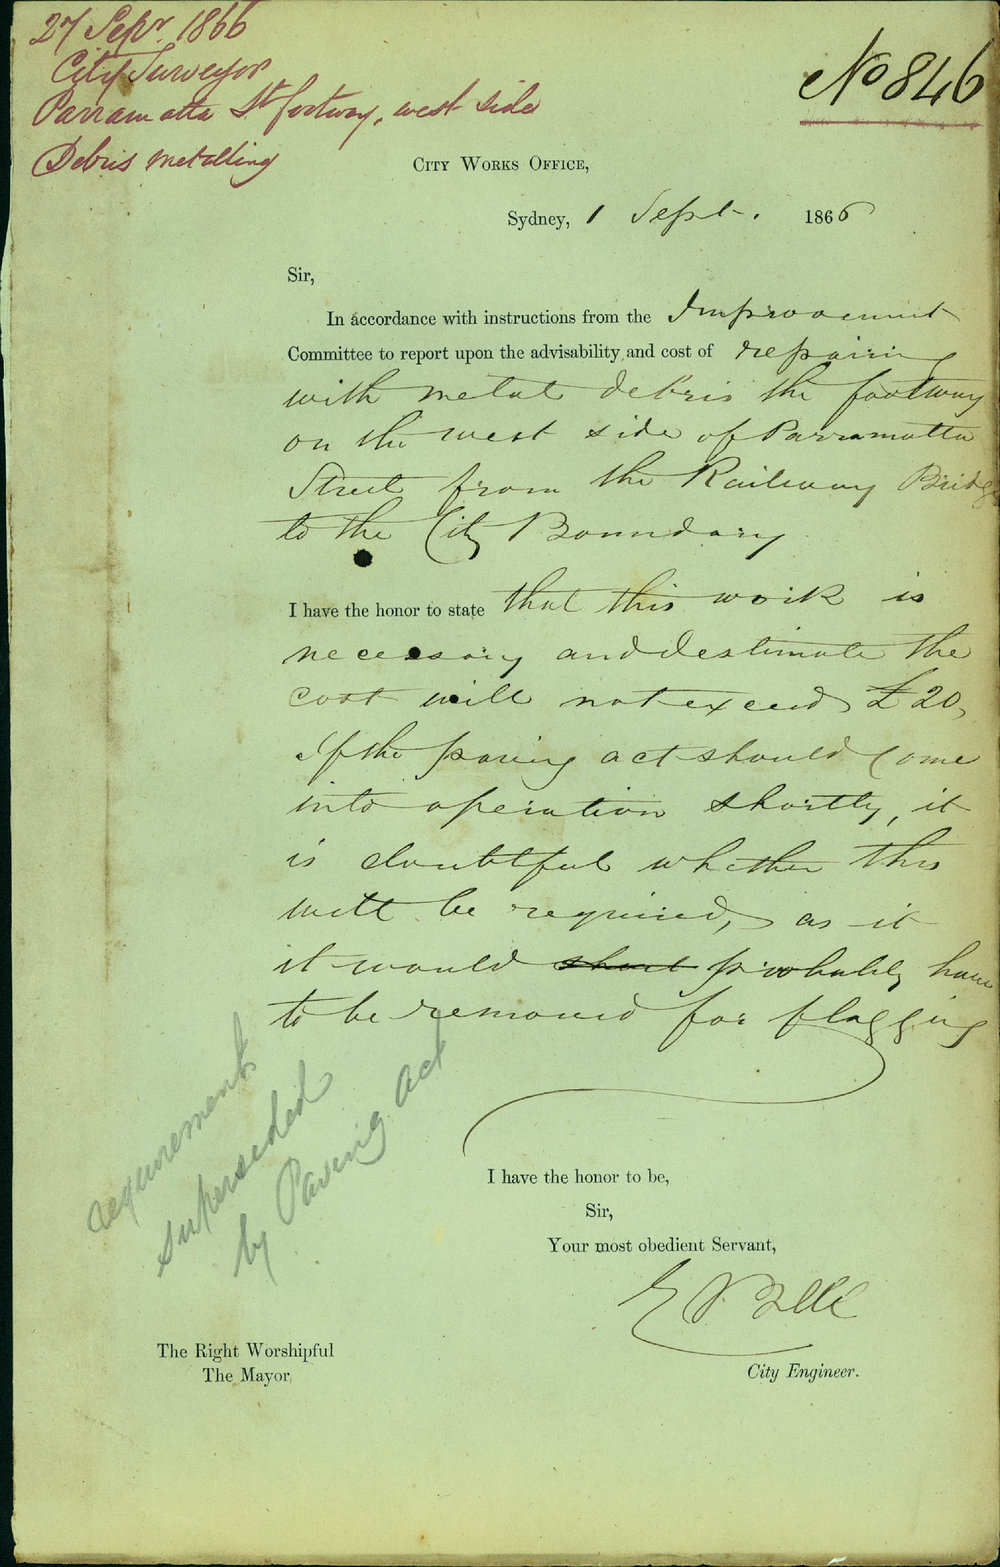 27 Sepr. 1866
City Surveyor
Parramatta St footway, west side
Debris metalling
No 846
City Works Office,
Sydney, 1 Sept. 1866
Sir,
In accordance with instructions from the Improvement
Committee to report upon the advisability and cost of repairing
with metal debris the footway
on the west side of Parramatta
Street from the Railway Bridge
to the City Boundary
I have the honor to state that this work is
necessary and I estimate the
cost will not exceed £20,
If the paving act should come
into operation shortly, it
is doubtful whether this
will be required, as it
it would probably have
to be removed for flagging
requirements
superseded
by Paving Act
I have the honor to be,
Sir,
Your most obedient Servant,
E Bell
City Engineer.
The Right Worshipful
The Mayor,